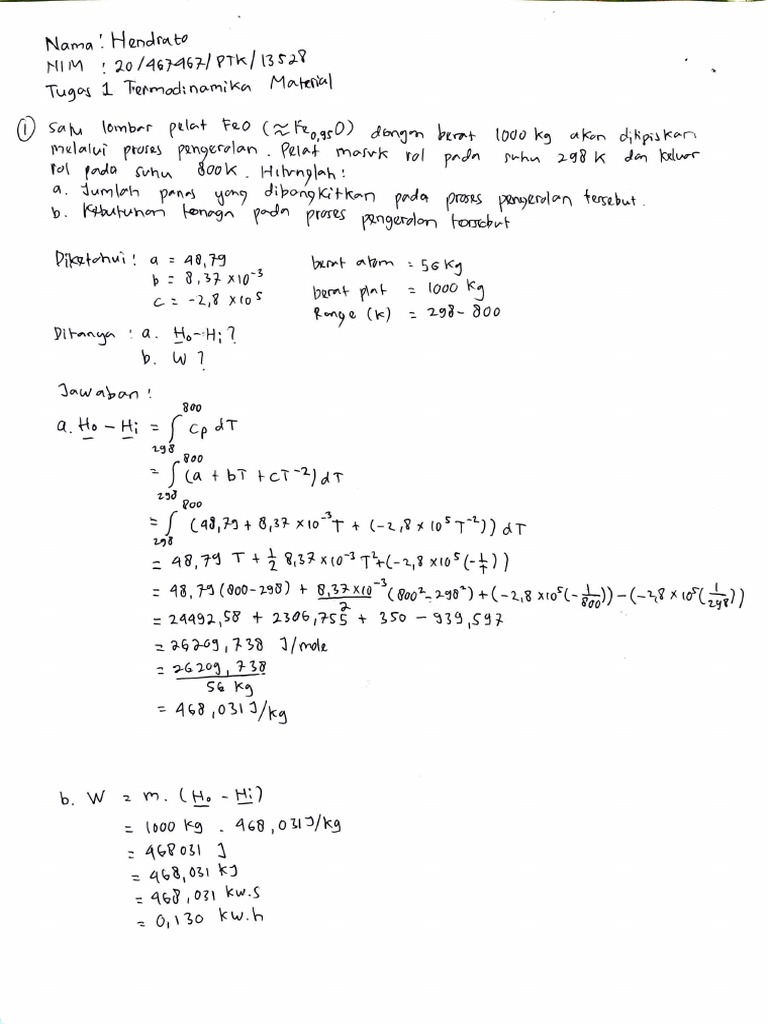 Nama : Hendrato
NIM : 20/467467/PTK/13528
Tugas 1 Termodinamika Material
① Satu lombar pelat FeO (≈ Fe0,95O) dengan berat 1000 kg akan ditipiskan
melalui proses pengerolan. Pelat masuk rol pada suhu 298 K dan keluar
rol pada suhu 800K. Hitunglah :
a. Jumlah panas yang dibangkitkan pada proses pengerolan tersebut.
b. Kebutuhan tenaga pada proses pengerolan tersebut
Diketahui : a = 48,79 berat atom = 56 Kg
b = 8,37 × 10⁻³ berat plat = 1000 Kg
c = -2,8 × 10⁵ Range (K) = 298 - 800
Ditanya : a. Ho - Hi ?
b. W ?
Jawaban :
a. Ho - Hi = ∫₂₉₈⁸⁰⁰ Cp dT
= ∫₂₉₈⁸⁰⁰ (a + bT + cT⁻²) dT
= ∫₂₉₈⁸⁰⁰ (48,79 + 8,37 × 10⁻³ T + (-2,8 × 10⁵ T⁻²)) dT
= 48,79 T + 1/2 8,37 × 10⁻³ T² + (-2,8 × 10⁵ (-1/T))
= 48,79 (800 - 298) + 8,37 × 10⁻³/2 (800² - 298²) + (-2,8 × 10⁵ (-1/800)) - (-2,8 × 10⁵ (1/298))
= 24492,58 + 2306,755 + 350 - 939,597
= 26209,738 J/mole
= 26209,738 / 56 kg
= 468,031 J/kg
b. W = m. (Ho - Hi)
= 1000 kg . 468,031 J/kg
= 468031 J
= 468,031 KJ
= 468,031 kw.s
= 0,130 kw.h